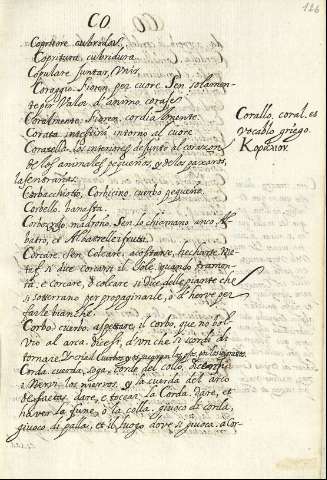 CO.
126
Copritore cubridor.
Copritura, cubridura.
Copulare juntar, Unir.
Coraggio. Fioren. per cuore. Sen. solamente per Valor d'animo coraje
Coralmente. Fioren. cordialmente.
Corallo, coral. es vocablo griego. Κοράλιον.
Corata. intestini, intorno al cuore
Coratella. los interiores de junto al corazon de los animales pequeños, y de los paxaros, las entrañas.
Corbacchiotto, Corbicino, cuerbo pequeño.
Corbello, banasta.
Corbezzolo madroño. Sen. lo chiamano
et Albarello i frutti.
Corcare. Sen. Colcare, acostarse, hecharse
si dice corcarsi il Sole, quando tramonta, e corcare, o colcare si dice delle piante che si sotterrano per propaginarle, o d'herve per farle bianche.
Corbo. cuerbo. aspettare il corbo, que no bolvio al arca. dicesi, d'un che si scorda di tornare.
Corda. cuerda, soga. corde del collo,
i Nervi. los niervos. y la cuerda del arco de
dare, e toccar la Corda. dare, et haver la fune, o la colla. giuoco di corda, giuoco di palla, et il luogo dove si giuoca a cor-